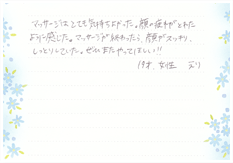 マッサージはとても気持ちよかった。顔の疲れがとれた
ように感じた。マッサージが終わったら、顔がスッキリ、
しっとりしていた。ぜひまたやってほしい!!
19才 女性 エリ